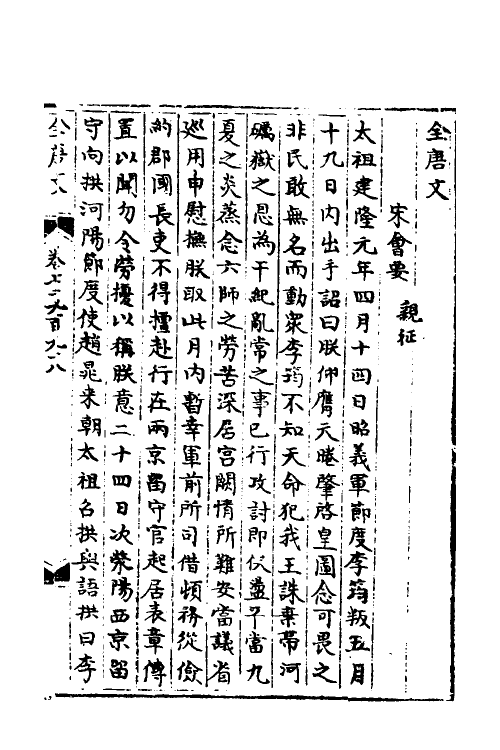 全唐文
宋會要
親征
太祖建隆元年四月十四日昭義軍節度李筠叛五月
十九日內出手詔曰朕仰膺天睠肇啓皇圖念可畏之
非民敢無名而動衆李筠不知天命犯我王誅棄帶河
礪嶽之恩為干紀亂常之事已行攻討即伏蕩平當九
夏之炎蒸念六師之勞苦深居宮闕情所難安當議省
巡用申慰撫朕取此月內暫幸軍前所司借頓務從儉
約郡國長吏不得擅赴行在兩京留守官起居表章傳
置以聞勿令勞擾以稱朕意二十四日次滎陽西京留
守向拱河陽節度使趙晁来朝太祖召拱與語拱曰李
全唐文